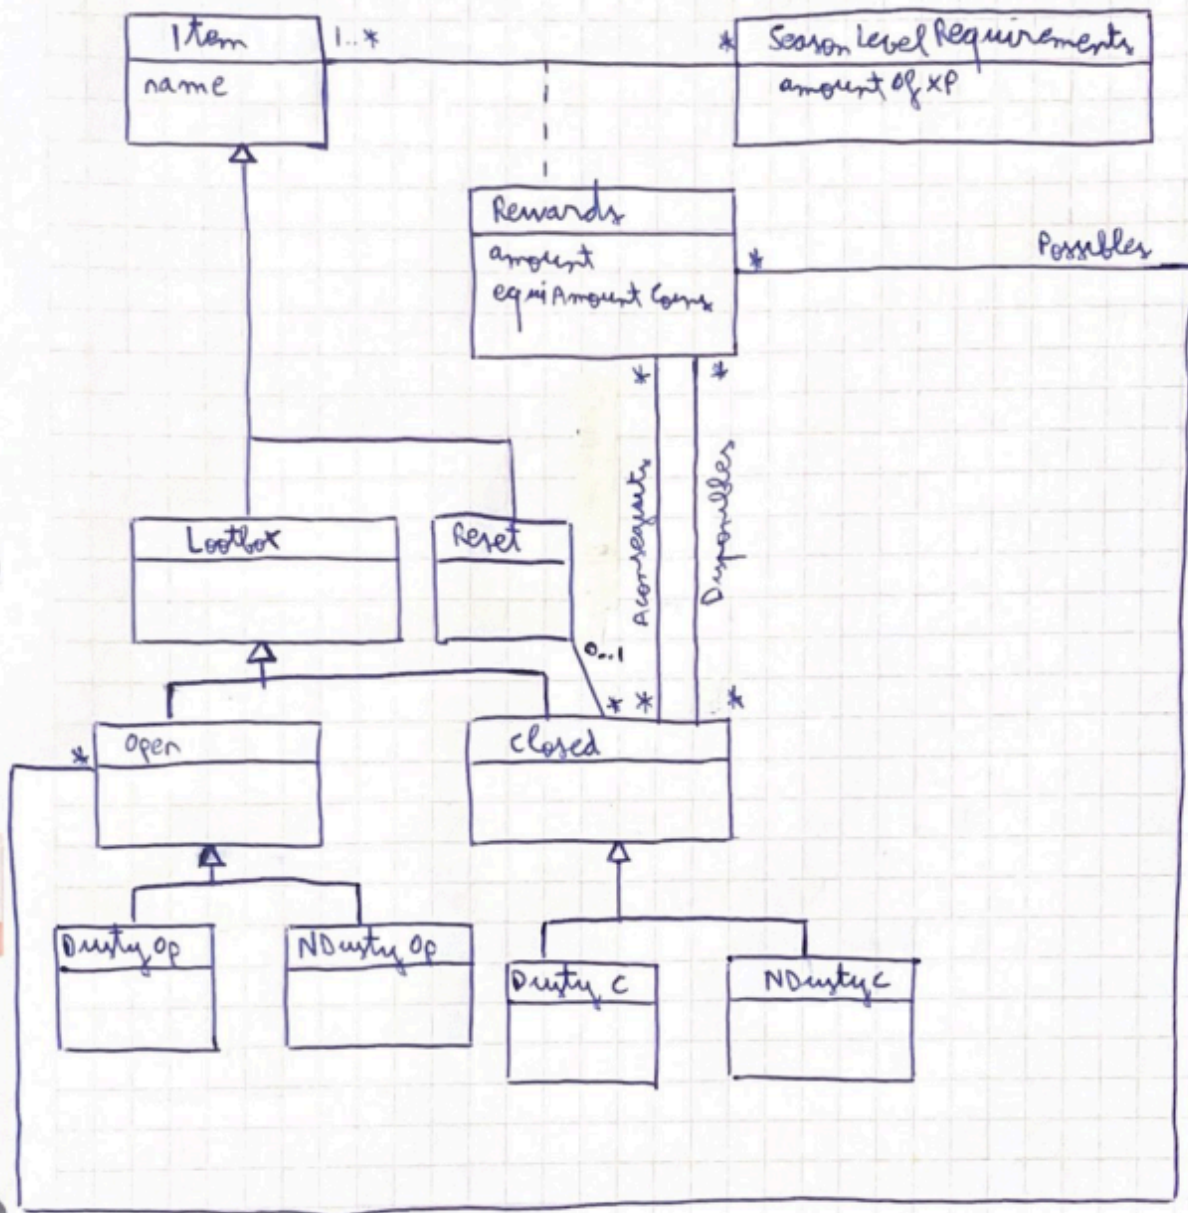 Item
1..*
*
Season Level Requirements
name
amount of XP
Rewards
amount
equiAmount Coins
*
Possibles
*
*
Aconseguits
Disponibles
Lootbox
Reset
0..1
*
*
*
*
Open
Closed
Dusty Op
NDusty Op
Dusty C
NDusty C